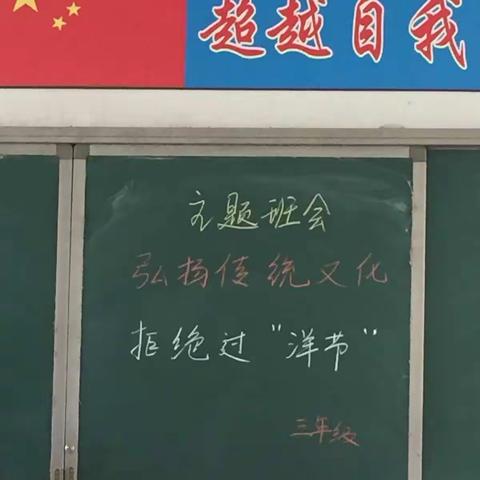 超越自我
主题班会
弘扬传统文化
拒绝过"洋节"
三年级